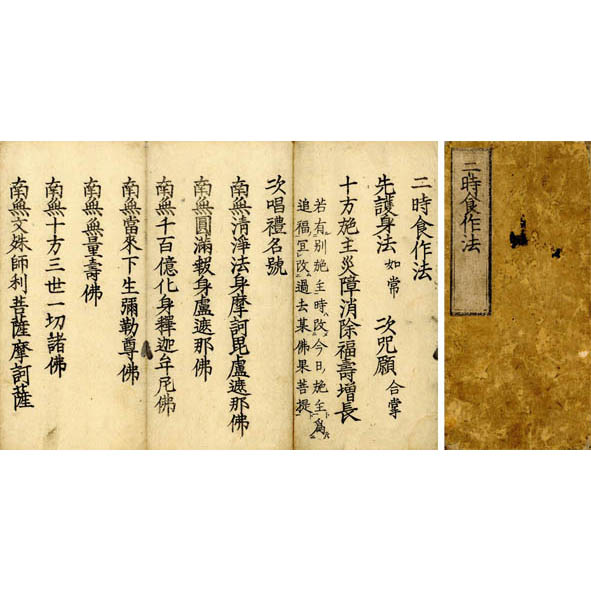 二時食作法
二時食作法
先護身法 如常 次呪願 合掌
十方施主災障消除福壽増長
若有別施主時改今日施主為
追福冝改過去某佛果菩提
次唱禮名號
南無清淨法身摩訶毘盧遮那佛
南無圓滿報身盧遮那佛
南無千百億化身釋迦牟尼佛
南無當來下生彌勒尊佛
南無無量壽佛
南無十方三世一切諸佛
南無文殊師利菩薩摩訶薩